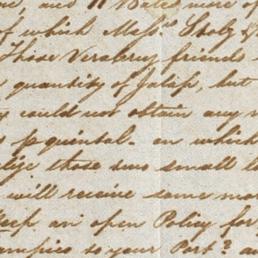 and 11 Bales more of
of which Messrs Stolz &
Those Veracruz friends
quantity of Jalip, but
could not obtain any
p quintal. on which
those two small
will receive some mo
an open Policy for
Tampico to your Port? an